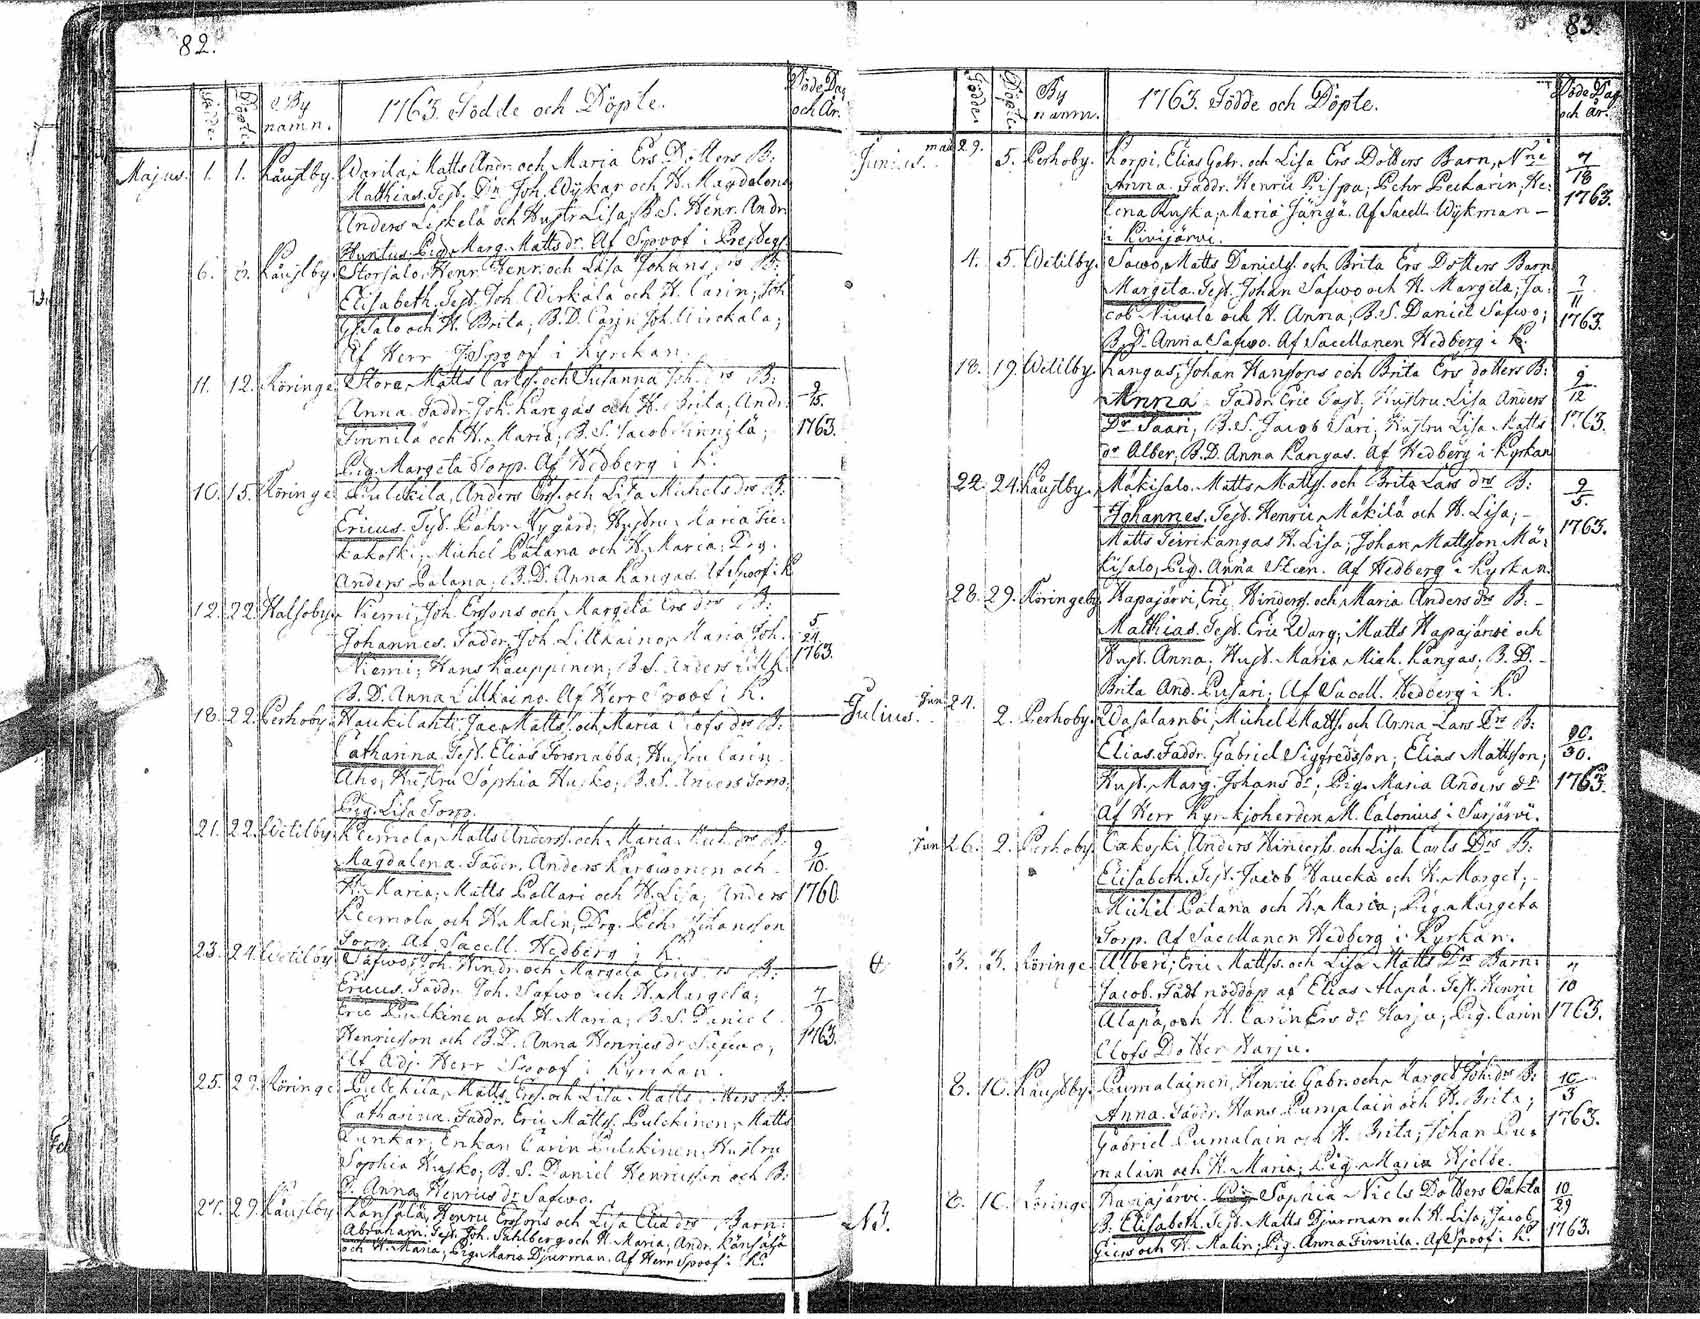 82.
Födde
Döpte
By namn.
1763. Födde och Döpte.
Döde Dag och År.
Majus. 1. 1. Kaustby. Warila, Matts Andr. och Maria Ers Dotters B:
Matthias. Test. Dn Joh. Wykar och H. Magdalena
Anders Liskelä och Hustr Lisa, B.S. Henr. Andr.
Huntus, Pig. Marg. Matts dr. Af Spoof i Prestegs.
6. Kaustby. Storsalo, Henr. Henr. och Lisa Johans drs B:
Elisabeth. Test. Joh. Wirkala och H. Carin; Joh
Salo och H. Brita; B.D. Carin Joh. Wirckala;
Af Herr J. Spoof i Kyrckan.
11. 12. Köringe Stora, Matts Carlss. och Susanna Joh. drs B:
Anna. Faddr. Joh. Kangas och H. Brita; Andr.
Finnilä och H. Maria; B.S. Jacob Finnilä;
Pig. Margeta Torp. Af Hedberg i K.
9/15. 1763.
10. 15. Köringe Pulckila, Anders Erss. och Lisa Michels drs B:
Ericus. Test. Pähr Nygård; Hustru Maria
Michel Patana och H. Maria; Drg.
Anders Patana; B.D. Anna Kangas. Af Spoof i K
12. 22. Halsoby. Niemi, Joh. Erssons och Margeta Ers drs B:
Johannes. Faddr. Joh. Lillkaino, Maria Joh.
Niemi; Hans Kauppinen; B.S. Anders
B.D. Anna Lillkaino. Af Herr Spoof i K.
5/24. 1763.
18. 22. Perhoby. Haukilahti, Jac. Mattss. och Maria Olofs drs B:
Catharina. Test. Elias Forsnabba; Hustru Carin
Aho, Hustru Sophia Husko; B.S. Anders Torp;
Pig. Lisa Torp.
21. 22. Wetilby. Kiemola, Matts Anderss. och Maria Mich. drs B:
Magdalena. Faddr. Anders och
H. Maria; Matts Pollari och H. Lisa; Anders
Kiemola och H. Malin; Drg. Pehr Johansson
Torp. Af Sacell. Hedberg i K.
9/10. 1760
23. 24. Wetilby Safwo, Joh. Hindr. och Margeta Erics drs B:
Ericus. Faddr. Joh. Safwo och H. Margeta;
Eric Pulkinen och H. Maria; B.S. Daniel
Henricsson och B.D. Anna Henrics dr Safwo;
Af Adj. Herr Spoof i Kyrckan.
7/9 1763.
25. 29. Köringe Pulckila, Matts Erss. och Lisa Matts B:
Catharina. Faddr. Eric Mattss. Pulckinen; Matts
Lunkar; Enkan Carin Pulckinen; Hustru
Sophia Husko; B.S. Daniel Henricsson och B.
D. Anna Henrics dr Safwo.
27. 29. Kaustby Känsälä, Henric Erssons och Lisa Elia drs Barn:
Abraham. Test. Joh. Sahlberg och H. Maria; Andr. Känsälä
och H. Maria; Pig. Maria Djurman. Af Herr Spoof i K.
83.
Födde
Döpte
By namn.
1763. Födde och Döpte.
Döde Dag och År.
Junius. maii 29. 5. Perhoby. Korpi, Elias Gabr. och Lisa Ers Dotters Barn, Nni
Anna. Faddr. Henric Pispa; Pehr Peckarin; He-
lena Ruska; Maria Jängä. Af Sacell. Wykman
i Kivijärvi.
7/18 1763.
4. 5. Wetilby. Sawo, Matts Danielss. och Brita Ers Dotters Barn
Margeta. Test. Johan Safwo och H. Margeta; Ja-
cob Nivala och H. Anna; B.S. Daniel Safwo;
B.D. Anna Safwo. Af Sacellanen Hedberg i K.
7/11 1763.
18. 19. Wetilby. Kangas, Johan Hanssons och Brita Ers dotters B:
Anna. Faddr. Eric Tast, Hustru Lisa Anders
Dr Saari; B.S. Jacob Sari; Hustru Lisa Matts
dr Alber; B.D. Anna Kangas. Af Hedberg i Kyrkan
9/12 1763.
22. 24. Kaustby. Mäkisalo. Matts Mattss. och Brita Lars drs B:
Johannes. Test. Henric Mäkilä och H. Lisa;
Matts Teirikangas H. Lisa; Johan Mattsson Mä-
kisalo, Pig. Anna Steen. Af Hedberg i Kyrkan.
9/5. 1763.
28. 29. Köringeby Hapajärvi, Eric Hinderss. och Maria Anders drs B:
Matthias. Test. Eric Warg; Matts Hapajärvi och
Hust. Anna; Hust. Maria Mich. Kangas; B.D.
Brita And. Pusari; Af Sacell. Hedberg i K.
Julius. Jun. 24. 2. Perhoby. Wasalambi, Michel Mattss. och Anna Lars Drs B:
Elias. Faddr. Gabriel Siggredsson; Elias Mattsson;
Hust. Marg. Johans dr; Pig. Maria Anders dr
Af Herr Kyrkjoherden M. Calonius i Sarjärvi.
30. 1763.
Jun. 26. 2. Perhoby. Oxkoski, Anders Hinderss. och Lisa Carls Drs B:
Elisabeth. Test. Jacob Haucka och H. Marget;
Michel Patana och H. Maria; Pig. Margeta
Torp. Af Sacellanen Hedberg i Kyrkan.
3. 3. Köringe Alberi; Eric Mattss. och Lisa Matts Drs Barn:
Jacob. Fådt nöddop af Elias Alapä. Test. Henric
Alapä och H. Carin Ers dr Harju; Pig. Carin
Olofs Dotter Harju.
7/10 1763.
8. 10. Kaustby. Pumalainen, Henric Gabr. och Marget Joh. drs B:
Anna. Faddr. Hans Pumalain och H. Brita;
Gabriel Pumalain och H. Brita; Johan Pu-
malain och H. Maria; Pig. Maria Hjelde.
10/3 1763.
NB. 8. 10. Köringe Hapajärvi. Sophia Niels Dotters Oäkta
B. Elisabeth. Test. Matts Djurman och H. Lisa; Jacob
Giers och H. Malin; Pig. Anna Finnila. Af Spoof i K.
10/29 1763.